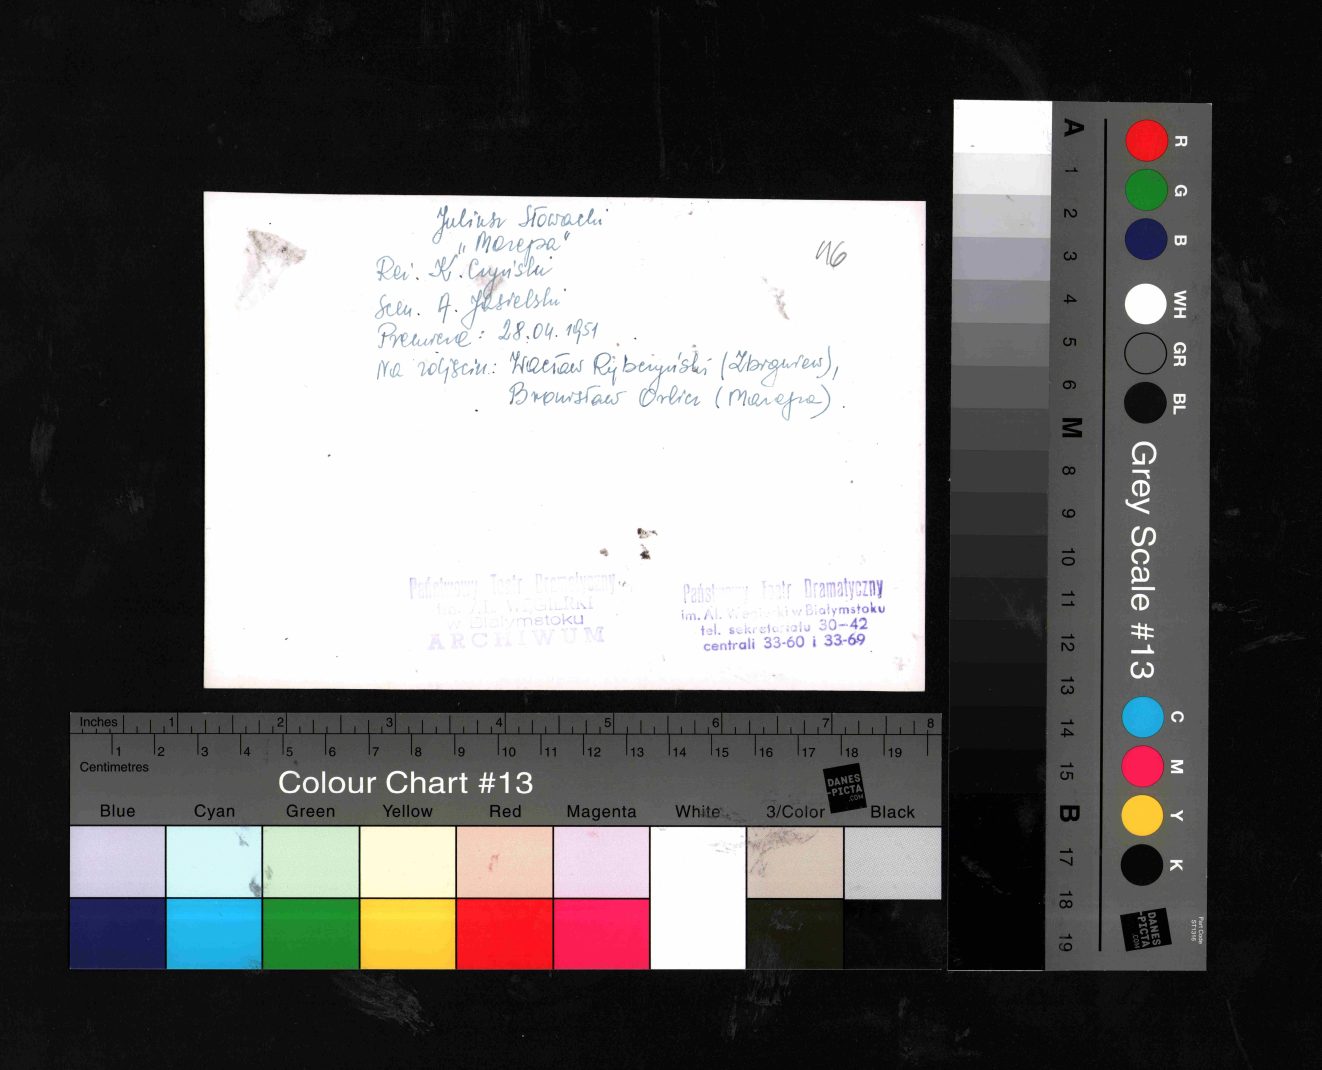 Juliusz Słowacki
„Mazepa"
Reż. K. Czyński
Scen. A. Jasielski
Premiera: 28.04.1951
Na zdjęciu: Wacław Rybczyński (Zbigniew),
Bronisław Orlicz (Mazepa).
16
Państwowy Teatr Dramatyczny
im. AL. WĘGIERKI
w Białymstoku
ARCHIWUM
Państwowy Teatr Dramatyczny
im. Al. Węgierki w Białymstoku
tel. sekretariatu 30-42
centrali 33-60 i 33-69
Inches 1 2 3 4 5 6 7 8
1 2 3 4 5 6 7 8 9 10 11 12 13 14 15 16 17 18 19
Centimetres
Colour Chart #13
DANES
-PICTA
.COM
Blue Cyan Green Yellow Red Magenta White 3/Color Black
A 1 2 3 4 5 6 M 8 9 10 11 12 13 14 15 B 17 18 19
R G B WH GR BL
Grey Scale #13
C M Y K
DANES
-PICTA
.COM
Part Code
ST1316